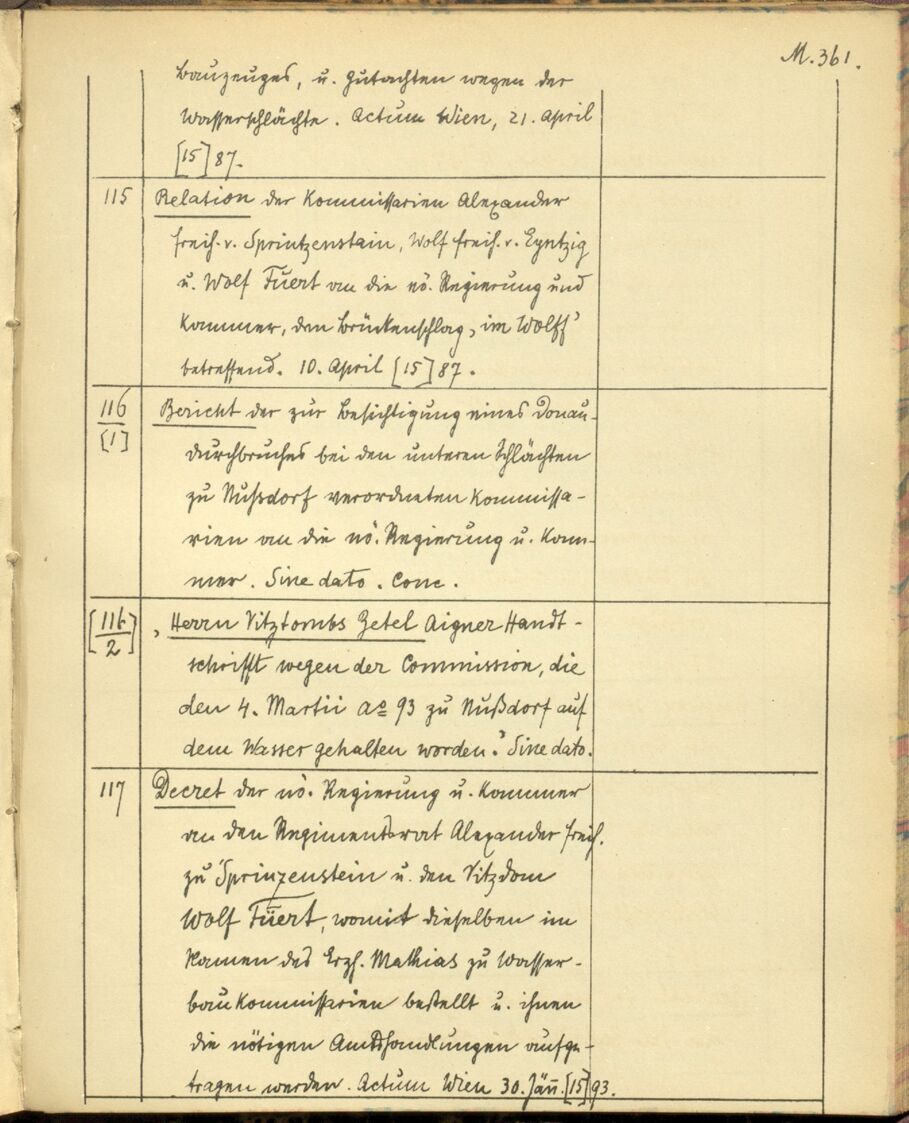 M. 361.
Bauzeuges, u. Gutachten wegen der
Wasserschlächte. Actum Wien, 21. April
[15]87.
115 Relation der Kommissarien Alexander
Freih. v. Sprintzenstain, Wolf Freih. v. Eyntzig
u. Wolf Fuert an die nö. Regierung und
Kammer, den Brückenschlag „im Wolff"
betreffend. 10. April [15]87.
116
[1]
Bericht der zur Besichtigung eines Donau-
durchbruches bei den unteren Schlächten
zu Nußdorf verordneten Kommissa-
rien an die nö. Regierung u. Kam-
mer. Sine dato. Conc.
[116
2]
„Herrn Vitztombs Zetel Aigner Handt-
schrifft wegen der Commission, die
den 4. Martii ao 93 zu Nußdorf auf
dem Wasser gehalten worden." Sine dato.
117 Decret der nö. Regierung u. Kammer
an den Regimentsrat Alexander Freih.
zu Sprinzenstein u. den Vitzdom
Wolf Fuert, womit dieselben im
Namen des Erzh. Mathias zu Wasser-
baukommissarien bestellt u. ihnen
die nötigen Amtshandlungen aufge-
tragen werden. Actum Wien 30. Jän. [15]93.